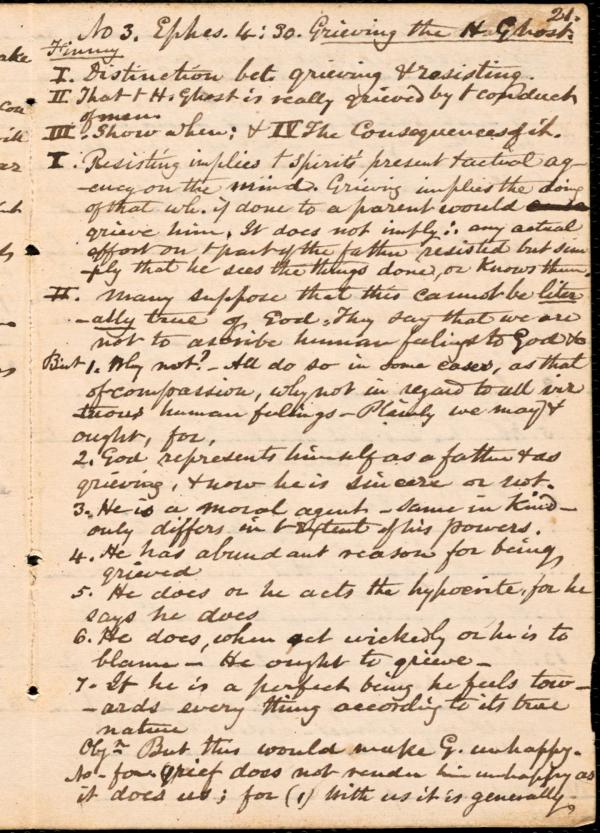 21.
No 3. Ephes. 4:30. Grieving the H. Ghost.
Finney
I. Distinction bet. grieving & resisting.
II. That t H. Ghost is really grieved by t conduct
of men
III. Show when; & IV The Consequences of it.
I. Resisting implies t Spirit's present & actual ag-
-ency on the mind. Grieving implies the doing
of that wh. if done to a parent would
grieve him. It does not imply ∴ any actual
effort on t part of the father resisted but sim
-ply that he sees the things done, or knows them.
II. Many suppose that this cannot be liter
-ally true of God. They say that we are
not to ascribe human feelings to God &c
But 1. Why not? - All do so in some cases, as that
of compassion, why not in regard to all vir
tuous human feelings - Plainly we may &
ought, for,
2. God represents himself as a father & as
grieving, & now he is sincere or not.
3. He is a moral agent - same in kind -
only differs in t extent of his powers.
4. He has abundant reason for being
grieved
5. He does or he acts the hypocrite, for he
says he does
6. He does, when act wickedly or he is to
blame - He ought to grieve -
7. If he is a perfect being he feels tow-
-ards every thing according to its true
nature
Obj.n But this would make G. unhappy.
No - for grief does not render him unhappy as
it does us; for (1) With us it is generally
ake
con
will
ar